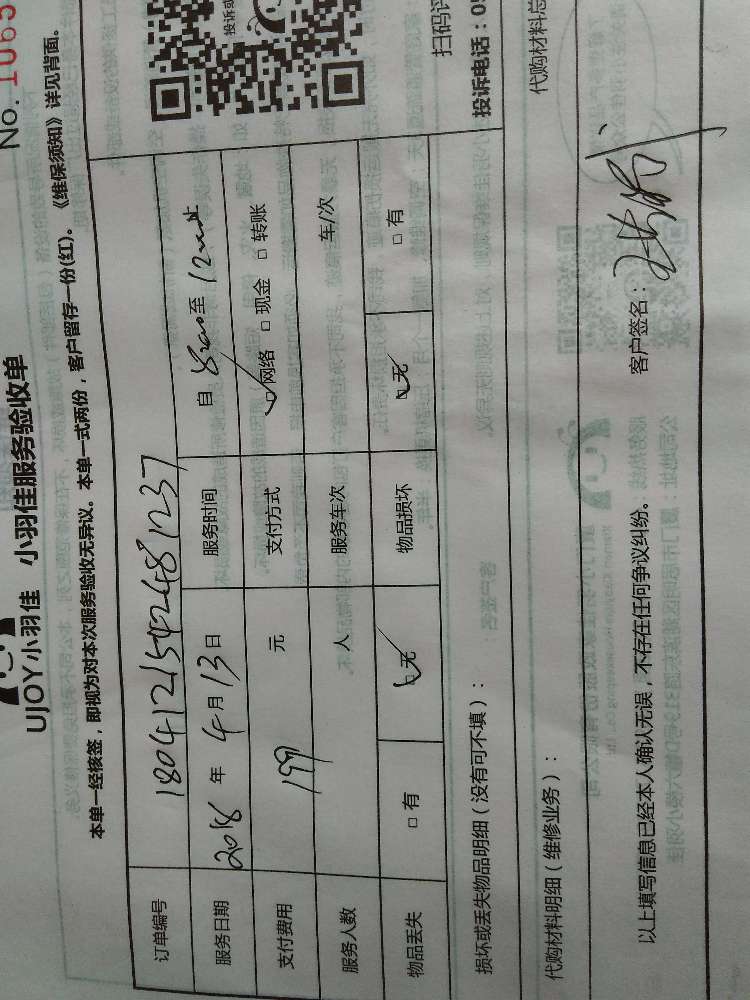 No. 1065
UJOY小羽佳 小羽佳服务验收单
本单一经核签，即视为对本次服务验收无异议。本单一式两份，客户留存一份(红)。《维保须知》详见背面。
订单编号 1804121542481237
服务日期 2018 年 4 月 13 日 服务时间 自 8:00 至 12:00 止
支付费用 199 元 支付方式 ☑网络 □现金 □转账
服务人数 人 服务车次 车/次
物品丢失 □有 ☑无 物品损坏 ☑无 □有
损坏或丢失物品明细（没有可不填）：
代购材料明细（维修业务）：
代购材料总
以上填写信息已经本人确认无误，不存在任何争议纠纷。
客户签名：
投诉或
扫码评
投诉电话：05